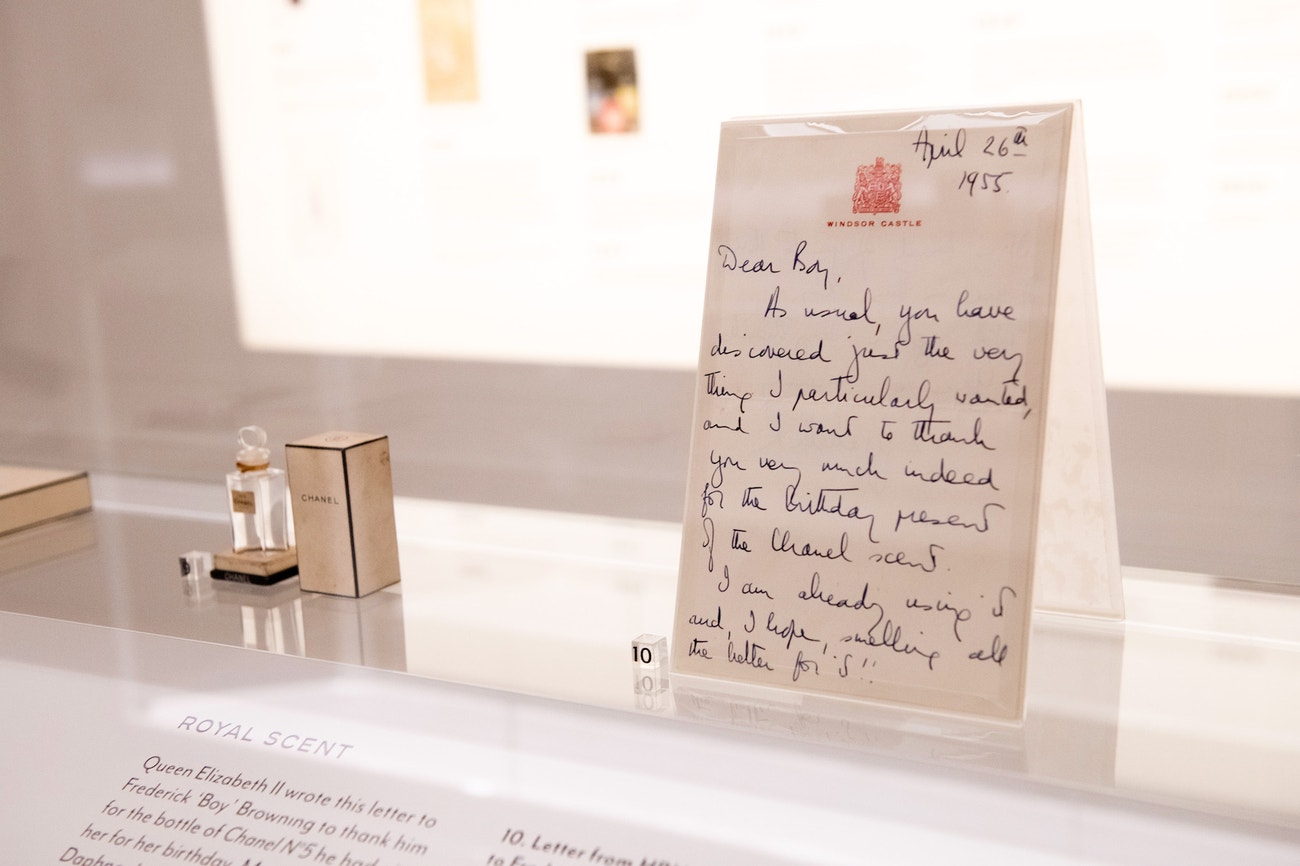 April 26th
1955.
WINDSOR CASTLE
Dear Boy,
As usual, you have
discovered just the very
thing I particularly wanted,
and I want to thank
you very much indeed
for the birthday present
of the Chanel scent.
I am already using it
and, I hope, smelling all
the better for it!!
CHANEL
CHANEL
CHANEL
9
10
ROYAL SCENT
Queen Elizabeth II wrote this letter to
Frederick 'Boy' Browning to thank him
for the bottle of Chanel N°5 he had
her for her birthday.
10. Letter from
to